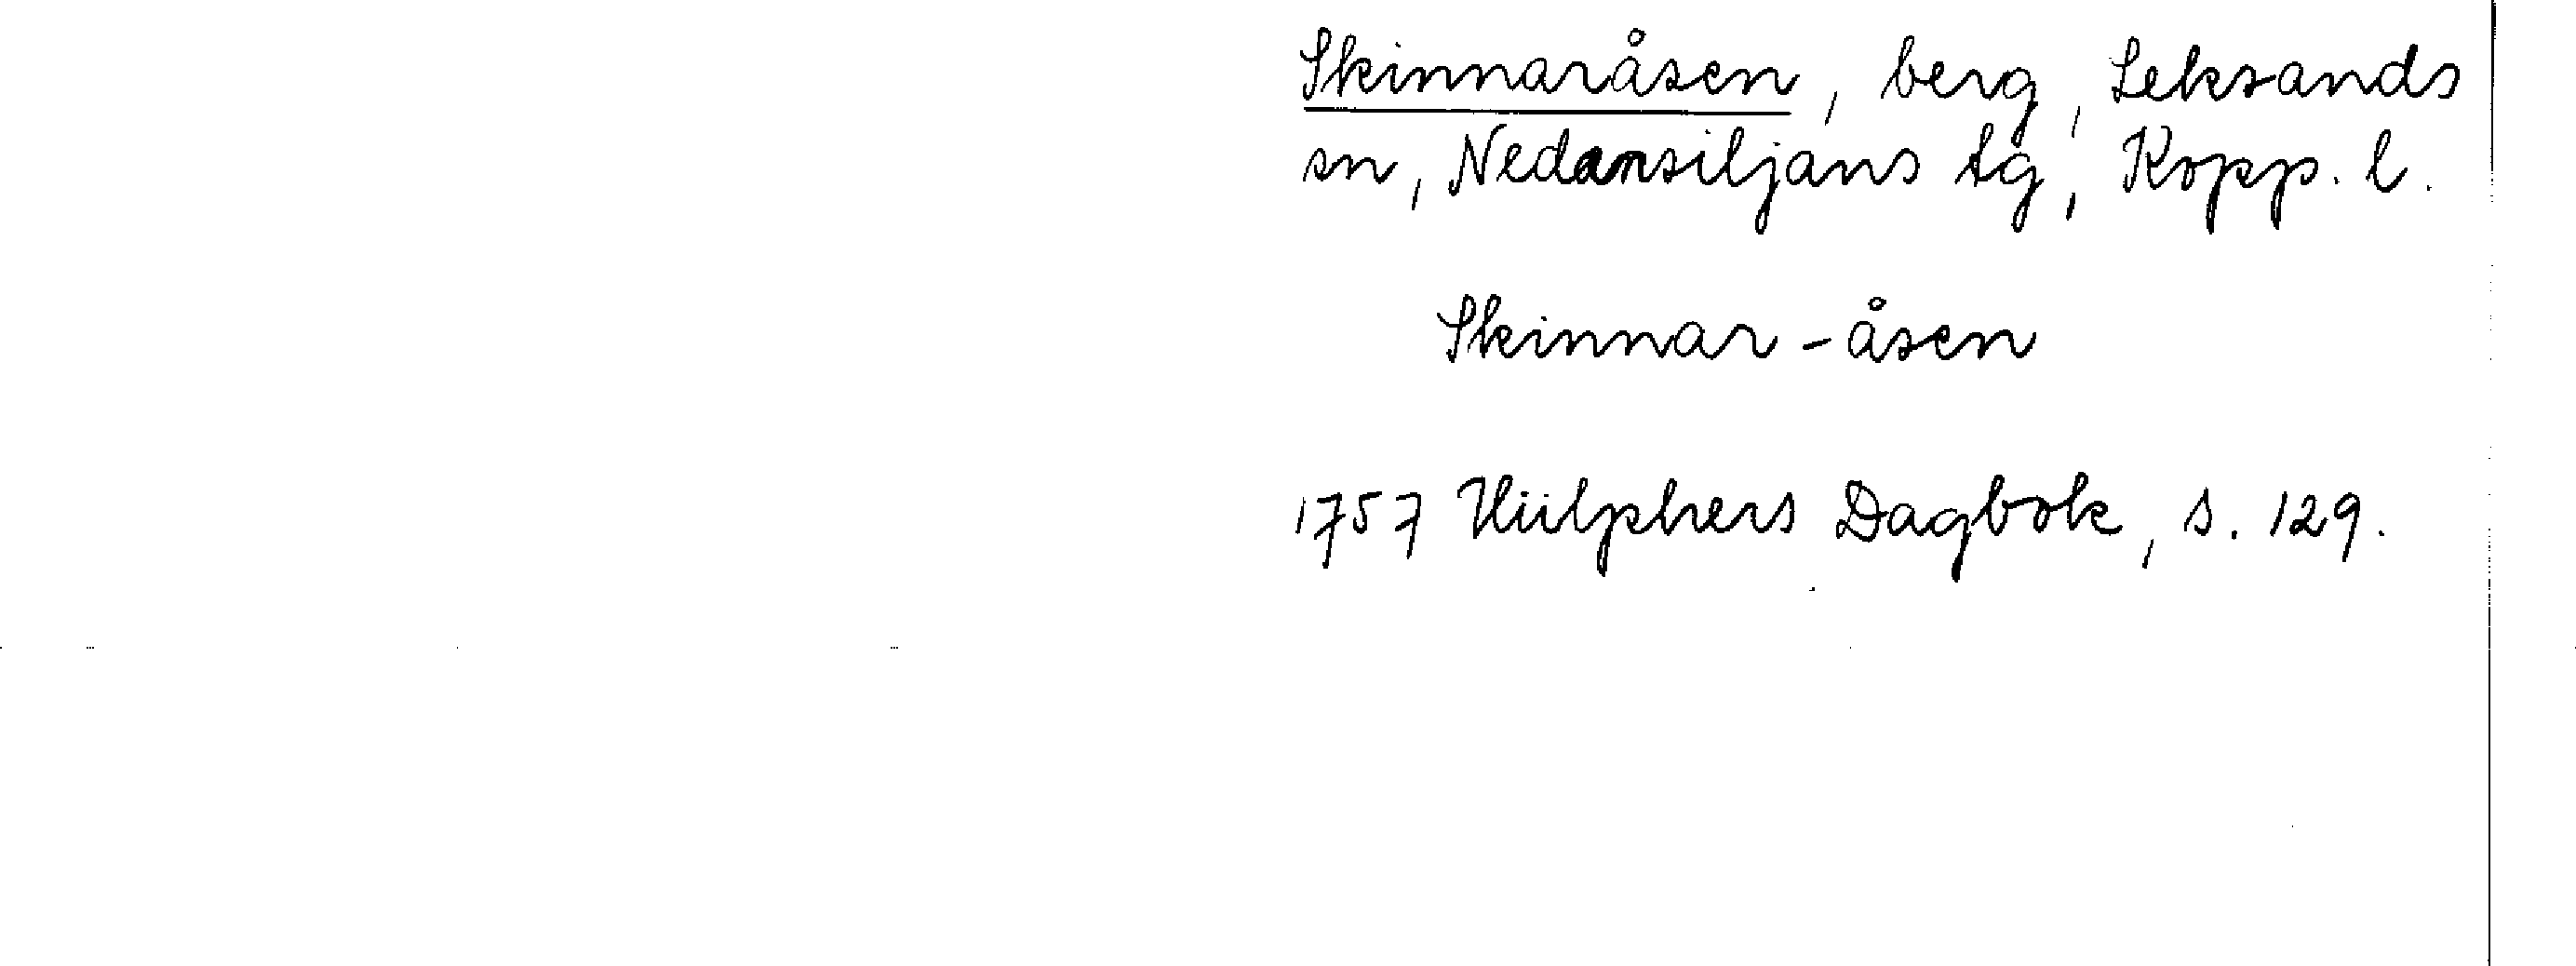 Skinnaråsen, berg, Leksands
sn, Nedansiljans tg, Kopp. l.
Skinnar-åsen
1757 Hülphers Dagbok, s. 129.